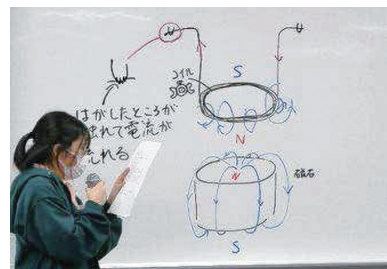 コイル
S
N
はがしたところが
触れて電流が
流れる
N
磁石
S